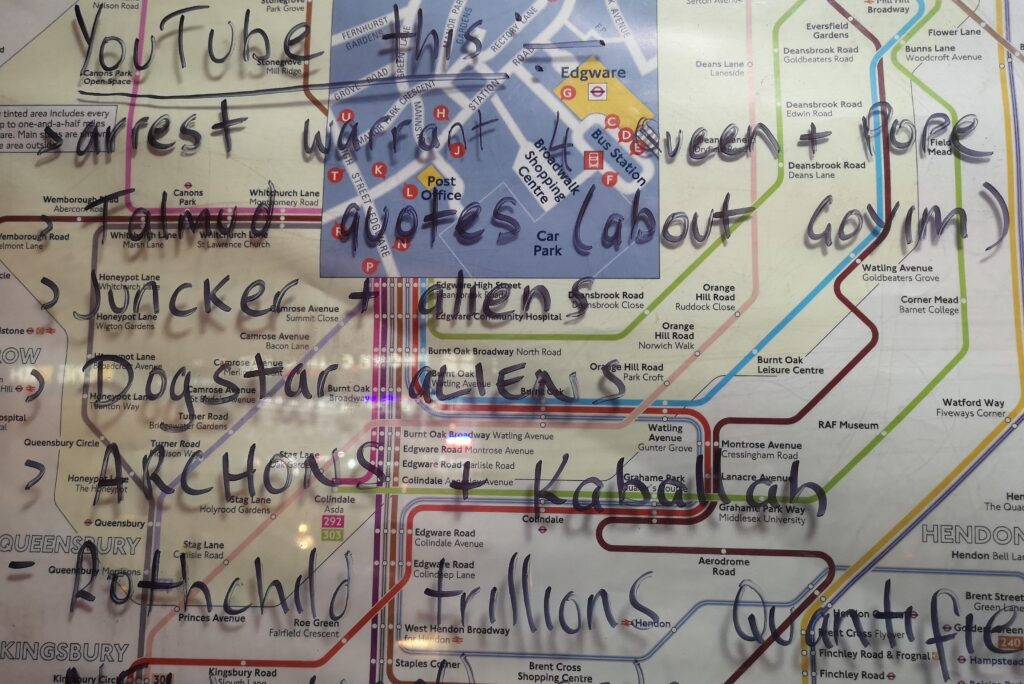 YouTube this :-
> arrest warrant 4 Queen + Pope
> Talmud quotes (about Goyim)
> Juncker + aliens
> Dogstar aLIENS
> ARCHONS + Kaballah
- Rothchild trillions Quantifie
FERNHURST GARDENS
Stonegrove Park Grove
Canons Park Open Space
Stonegrove Mill Ridge
GROVE ROAD
MANOR PARK CRESCENT
STATION ROAD
RECTORY
PARK AVENUE
Edgware
Bus Station
Broadwalk Shopping Centre
Post Office
Car Park
HIGH STREET EDGWARE
U
H
J
K
T
L
N
P
G
C
D
E
F
Mill Hill Broadway
Eversfield Gardens
Deansbrook Road Goldbeaters Grove
Flower Lane
Bunns Lane Woodcroft Avenue
Deans Lane Laneside
Deansbrook Road Edwin Road
Deansbrook Road Deans Lane
Field Mead
Canons Park
Wemborough Road Abercorn Road
Whitchurch Lane Montgomery Road
Whitchurch Lane Marsh Lane
Whitchurch Lane St Lawrence Church
Honeypot Lane Whitchurch Lane
Honeypot Lane Wigton Gardens
Camrose Avenue Summit Close
Camrose Avenue Bacon Lane
Edgware High Street
Edgware Community Hospital
Deansbrook Road Deansbrook Close
Orange Hill Road Ruddock Close
Orange Hill Road Norwich Walk
Orange Hill Road Park Croft
Watling Avenue Goldbeaters Grove
Corner Mead Barnet College
Burnt Oak Broadway North Road
Burnt Oak Leisure Centre
Burnt Oak Broadway
Burnt Oak Broadway Watling Avenue
Watling Avenue Gunter Grove
Watford Way Fiveways Corner
RAF Museum
Turner Road Bridgewater Gardens
Queensbury Circle
Edgware Road Montrose Avenue
Edgware Road Carlisle Road
Colindale Annesley Avenue
Montrose Avenue Cressingham Road
Lanacre Avenue
Grahame Park
Grahame Park Way Middlesex University
Honeypot Lane The Honeypot
Stag Lane Holyrood Gardens
Colindale Asda
292
303
Colindale
Queensbury
QUEENSBURY
Queensbury Morrisons
Stag Lane Carlisle Road
Edgware Road Colindale Avenue
Edgware Road Colindeep Lane
Aerodrome Road
HENDON
Hendon Bell Lane
Princes Avenue
Roe Green Fairfield Crescent
West Hendon Broadway for Hendon
Hendon
Brent Street Green Lane
Brent Cross Flyover
Golders Green
240
Finchley Road & Frognal
Hampstead
Finchley Road
KINGSBURY
Kingsbury Circle
Kingsbury Road Slough Lane
Staples Corner
Brent Cross Shopping Centre